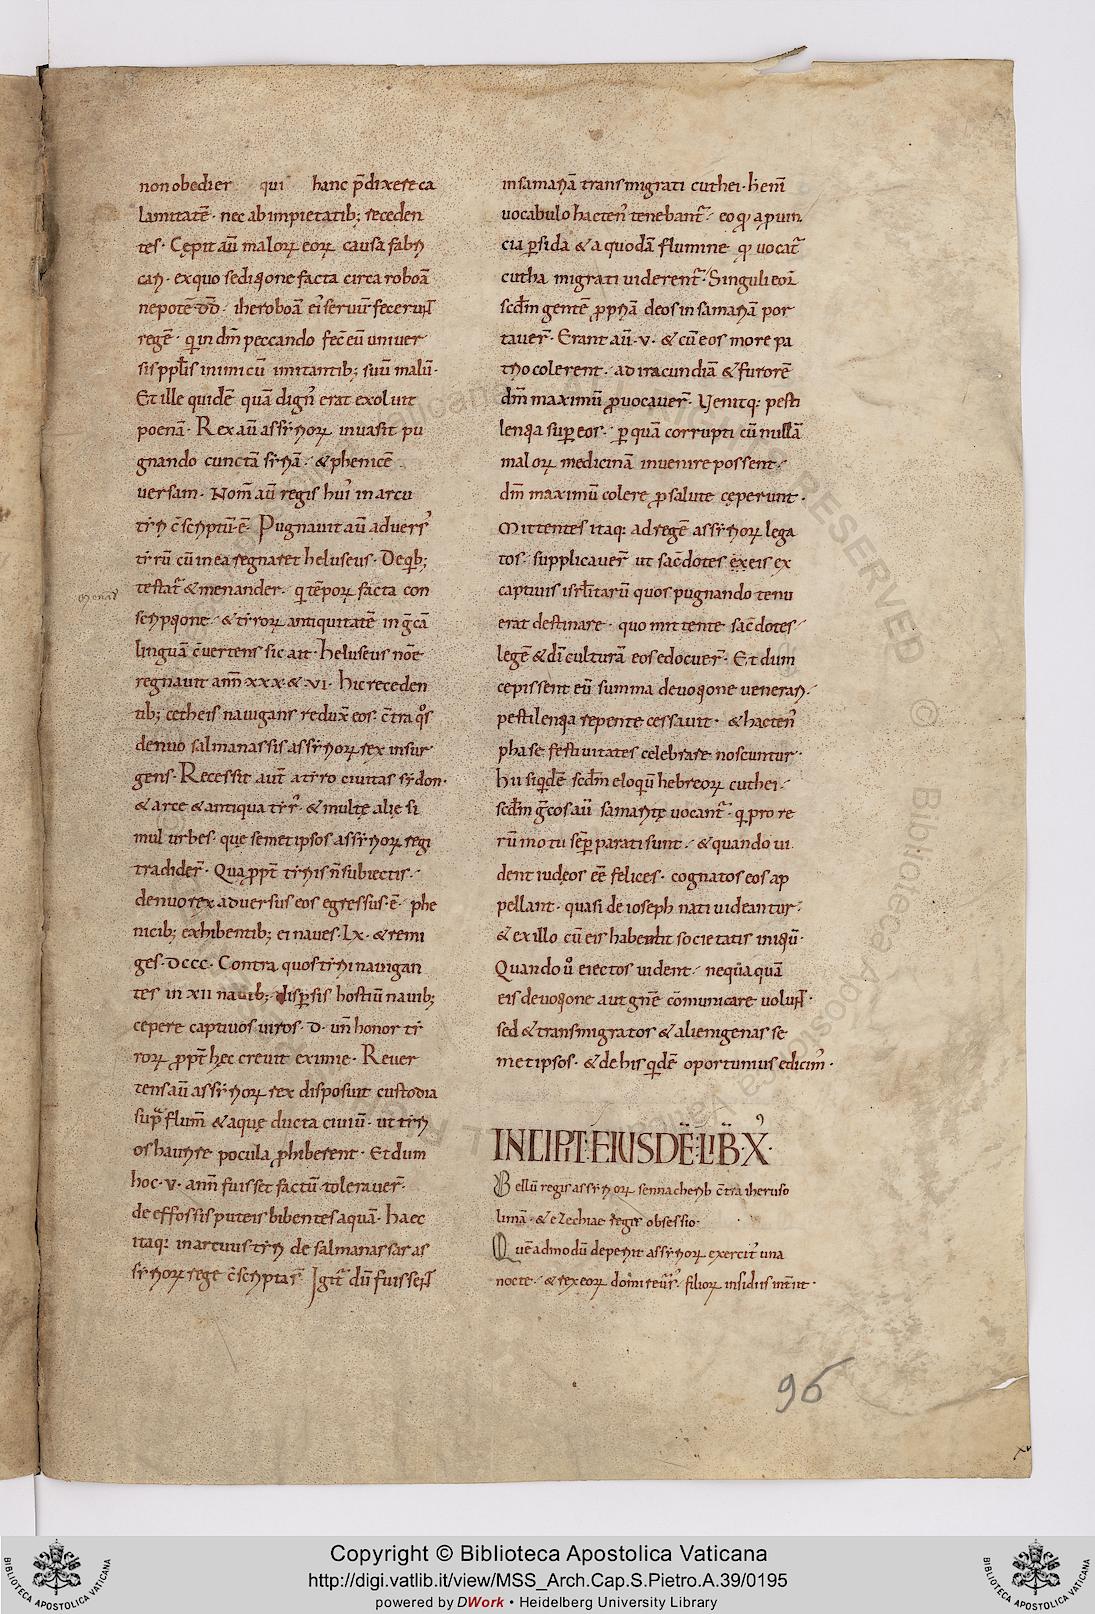 non obedier qui hanc p̄dixere ca
lamitatē · nec ab impietatib; receden
tes · Cępit aū maloꝝ eoꝝ causa fabri
cari · ex quo seditione facta circa roboā
nepotē dd̄ · iheroboā ei᷒ seruū fecerunt
regē · qͥ in dm̄ peccando fec̄ eū univer
sis ppl̄is inimicū imitantib; suū malū ·
Et ille quidē quā dign᷒ erat exoluit
poenā · Rex aū assirioꝝ invasit pu
gnando cunctā siriā · & phenicē
versam · Nom̄ aū regis hui᷒ in arcu
tiri c̄scriptū · ē · Pugnavit aū advers᷒
tirū cū in ea regnaret heluseus · De qͥb;
testat᷑ & menander · qͥ tēpoꝝ facta con
scriptione · & tiroꝝ antiquitatē in gͣcā
linguā c̄vertens sic ait · heluseus nōe
regnavit ann̄ xxx · & vi · hic receden
tib; cetheis navigans reduxͭ eos · c̄tra qͦs
denuo salmanassis assirioꝝ rex insur
gens · Recessit aut̄ a tiro civitas sidon ·
& arce & antiqua tir᷒ · & multę alię si
mul urbes · quę semetipsos assirioꝝ regi
tradider̄ · Qua ppt̄ tiriis n̄ subiectis ·
denuo rex adversus eos egressus · ē · phe
nicib; exhibentib; ei naves · lx · & remi
ges · dccc · Contra quos tirii navigan
tes in xii navib; dispersis hostiū navib;
cepere captivos viros · d · un̄ honor ti
roꝝ ppt̄ hęc crevit eximie · Rever
tens aū assirioꝝ rex disposuit custodia
supͣ flum̄ & aquę ducta civiū · ut tiri
os haurire pocula ꝓhiberent · Et dum
hoc · v · ann̄ fuisset factū toleraver̄ ·
de effossis puteis bibentes aquā · haec
itaq; in arcivis tiri de salmanassar as
sirioꝝ rege c̄scripta s̄ Igit᷑ dū fuissent
Menand᷒
in samariā transmigrati cuthei · h eni᷒
vocabulo hacten᷒ tenebant᷑ · eo qͩ a ꝓvin
cia ꝑsida & a quodā flumine qͩ vocat᷑
cutha migrati viderent᷑ · Singuli eoꝝ
scdm̄ gentē ꝓpriā deos in samariā por
taver̄ · Erant aū · v · & cū eos more pa
trio colerent · ad iracundiā & furorē
dm̄ maximū ꝓvocaver̄ · Venitq; pesti
lentia suꝑ eos · ꝑ quā corrupti cū nullā
maloꝝ medicinā invenire possent ·
dm̄ maximū colere ꝓ salute cęperunt ·
Mittentes itaq; ad regē assirioꝝ lega
tos · supplicaver̄ ut sac̄dotes ex eis ex
captivis isrl̄itarū quos pugnando tenu
erat destinare · quo mittente sac̄dotes ·
legē & di᷒ culturā eos edocuer̄ · Et dum
cepissent eū summa devotione venerari ·
pestilentia repente cessavit · & hacten᷒
phase festivitates celebrare noscuntur ·
Hii siqͥdē scdm̄ eloqͥū hebreoꝝ cuthei ·
scdm̄ gͣcos aū samaritę vocant᷑ · qͥ pro re
rū motu sēꝑ parati sunt · & quando vi
dent iudęos ēē felices · cognatos eos ap
pellant · quasi de ioseph nati videantur ·
& ex illo cū eis habent societatis initiū ·
Quando v̊ eiectos vident · nequaquā
eis devotione aut gn̄e cōmunicare volunt ·
sed & transmigratos & alienigenas se
metipsos · & de his qͥdē oportunius edicim᷒ ·
INCIPIT · EIUSDĒ · LIB̄ · X᷒ ·
Bellū regis assirioꝝ sennacherib c̄tra iheruso
limā · & ezechiae regis obsessio ·
Quēadmodū deperiit assirioꝝ exercit᷒ una
nocte · & rex eoꝝ domi revers᷒ · filioꝝ insidiis int̄iit ·
96
xv
Copyright © Biblioteca Apostolica Vaticana
http://digi.vatlib.it/view/MSS_Arch.Cap.S.Pietro.A.39/0195
powered by DWork • Heidelberg University Library
BIBLIOTECA APOSTOLICA VATICANA
BIBLIOTECA APOSTOLICA VATICANA